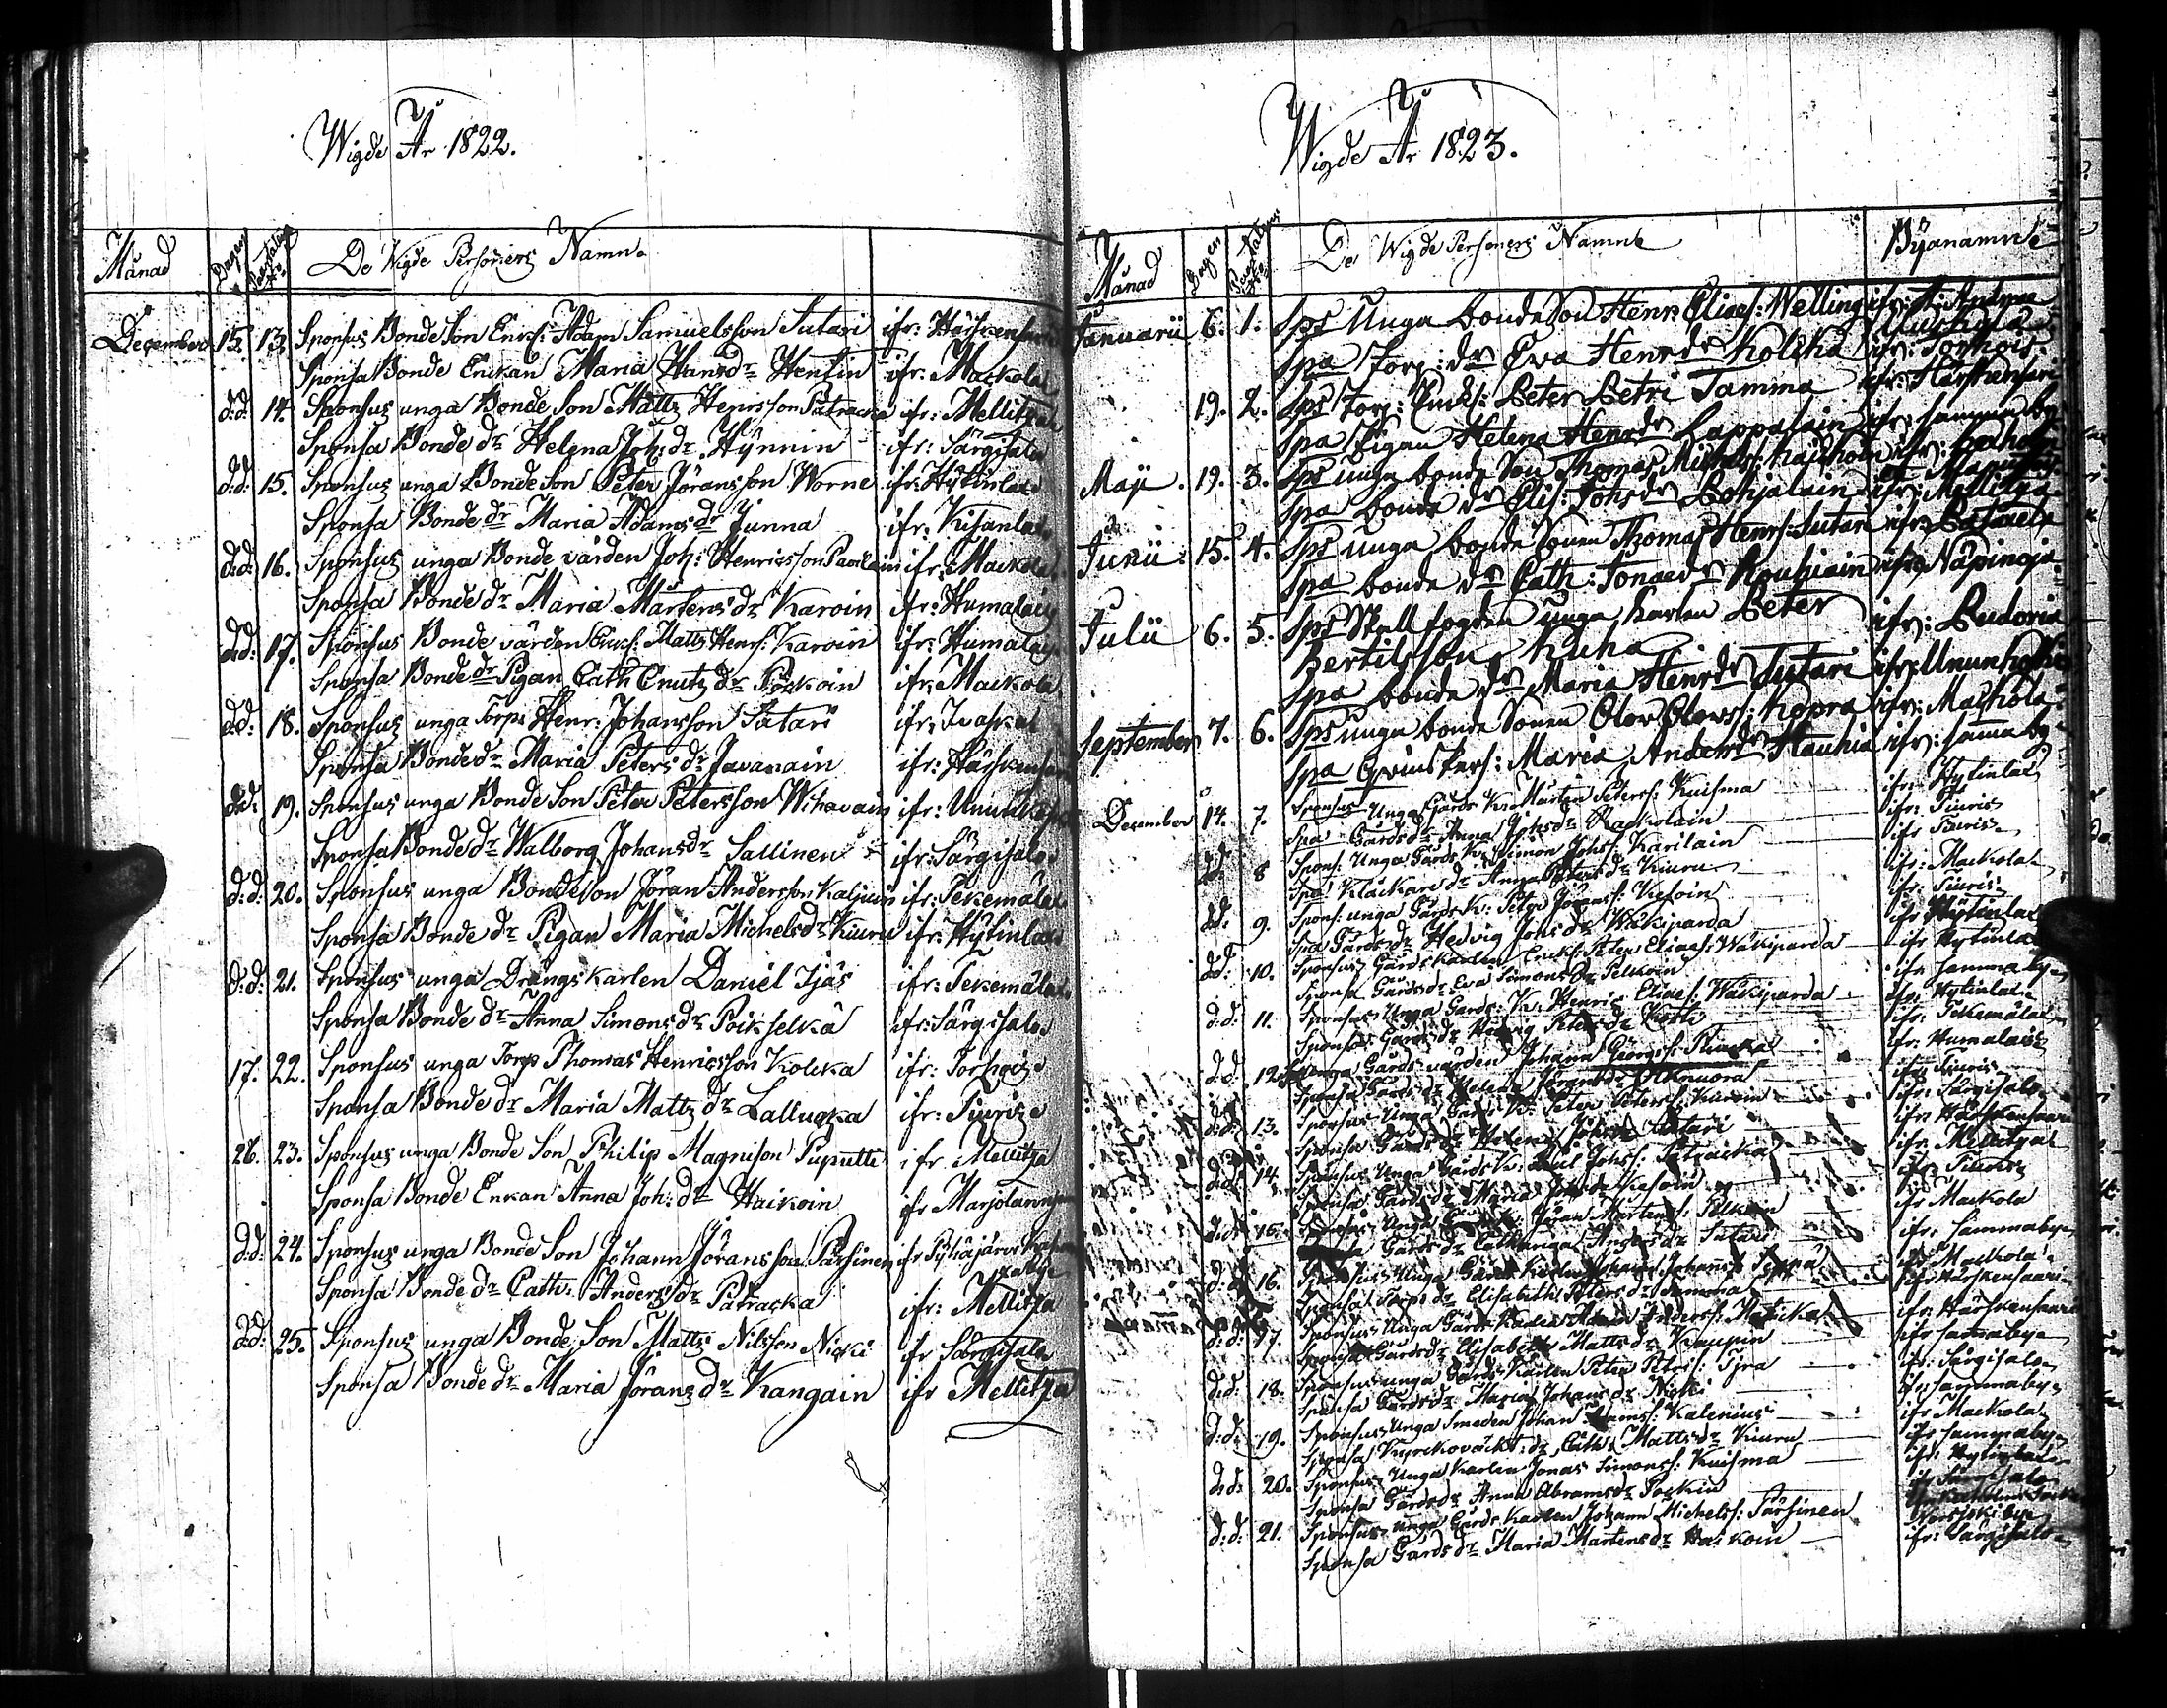 Wigde År 1822.
Månad Dagen De Wigde Personers Namn
December 15. 13. Sponsus Bonde Son Enkl: Adam Samuelsson Sutari ifr: Härskensari
Sponsa Bonde Enkan Maria Henrsdr Hentin ifr: Mackola
d:d: 14. Sponsus unga Bonde Son Matts Henrsson Patracka ifr: Mellitsa
Sponsa Bonde dr Helena Joh: dr Hynnin ifr: Särgisalo
d:d: 15. Sponsus unga Bonde Son Peter Jöransson Worne ifr: Hytinlax
Sponsa Bonde dr Maria Adams dr Junna ifr: Kisanlax
d:d: 16. Sponsus unga Bonde vården Joh: Henricsson Pavilain ifr: Mackola
Sponsa Bonde dr Maria Mårtens dr Karoin ifr: Humalais
d:d: 17. Sponsus Bonde vården Enkl: Matts Henrs: Karoin ifr: Humalais
Sponsa Bonde dr Pigan Cath Cnuts dr Pöckoin ifr: Mackola
d:d: 18. Sponsus unga Torps Henr: Johansson Sutari ifr:
Sponsa Bonde dr Maria Peters dr Javanain ifr: Härskensari
d:d: 19. Sponsus unga Bonde Son Peter Petersson Wihavain ifr:
Sponsa Bonde dr Walborg Johans dr Sallinen ifr: Särgisalo
d:d: 20. Sponsus unga Bonde Son Jöran Andersson Kaljuin ifr: Tekemälax
Sponsa Bonde dr Pigan Maria Michels dr Kiuru ifr: Hytinlax
d:d: 21. Sponsus unga Drängs Karlen Daniel Ijäs ifr: Tekemälax
Sponsa Bonde dr Anna Simons dr Poikselkä ifr: Särgisalo
17. 22. Sponsus unga Torp Thomas Henricsson Kolcka ifr: Torhois
Sponsa Bonde dr Maria Matts dr Lallucka ifr: Tiuris
26. 23. Sponsus unga Bonde Son Philip Magnison Puputti ifr Mellitsa
Sponsa Bonde Enkan Anna Joh: dr Haikoin ifr
d:d: 24. Sponsus unga Bonde Son Johann Jöransson Pärsinen ifr Pyhäjärvi
Sponsa Bonde dr Cath: Anders dr Patracka ifr: Mellitsa
d:d: 25. Sponsus unga Bonde Son Matts Nilsson Nicki ifr Särgisalo
Sponsa Bonde dr Maria Jörans dr Kangain ifr Mellitsa
Wigde År 1823.
Månad Dagen De Wigde Personers Namn Byanamn
Januarii 6. 1. Sps Unga bonde Son Henr: Elias: Welling ifr: St: Andrae
Spa Torp: dr Eva Henr dr Kolcka ifr: Torhois
19. 2. Sps Torp: Enkl: Peter Petri Tamma ifr: Härskensari
Spa Pigan Helena Henrs dr Lappalain ifr: samma by
Maji 19. 3. Sps unga bonde Son Thomas Michels: Käihkoin ifr:
Spa bonde dr Elis: Johs dr Pohjalain ifr: Mellitsa
Junii 15. 4. Sps unga bonde Sonen Thomas Henrs: Sutari ifr:
Spa bonde dr Cath: Jonae dr Rouhiain ifr: Näpinoja
Julii 6. 5. Sps Skall fogden unga karlen Peter
Bertilsson Kuha ifr: Pudoria
Spa bonde dr Maria Henr dr Sutari ifr:
September 7. 6. Sps unga bonde Sonen Olov Olovs: Kopra ifr: Mackola
Spa Qvins Pers: Maria Anders dr Haunia ifr: samma by
December 14. 7. Sponsus Unga Gårds K: Mårten Peters: Kuisma ifr: Hytinlax
Spa Gårds dr Anna Johs dr Rackolain ifr: Tiuris
d:d: 8 Spons: Unga Gårds K: Simon Johs: Karilain ifr Tiuris
Spa Klåckare dr Anna Peters dr Kiuru ifr: Mackola
d:d: 9. Spons: unga Gårds K: Peter Jörans: Kesoin ifr: Tiuris
Spa Gårds dr Hedvig Johs dr Wäkiparda ifr Hytinlax
d:d: 10. Sponsus Gårdskarlen Enkl: Peter Elias: Wäkiparda ifr Hytinlax
Sponsa Gårds dr Eva Simons dr Pelkoin ifr samma by
d:d: 11. Sponsus Unga Gårds: K: Henric Elias: Wäkiparda ifr: Hytinlax
Sponsa Gårds dr Hedvig Peters dr Kosti ifr: Tekemälax
d:d: 12. Unga Gårds vården Johann Geörgs: Riucka ifr: Humalais
Sponsa Gårds dr Helena Jörans dr ifr: Tiuris
d:d: 13. Sponsus Unga Gårds K: Peter Peters: Kurvin ifr: Särgisalo
Sponsa Gårds dr Helena Johs dr Sutari ifr: Härskensaari
d:d: 14. Sponsus Unga Gårds K: Paul Johs: Patracka ifr: Mellitsa
Sponsa Gårds dr Maria Johs dr Kesoin ifr: Tiuris
d:d: 15. Sponsus Unga Gårds K: Jöran Mårtens: Pelkoin ifr Mackola
Gårds dr Catharina Anders dr Sutari ifr: samma by
d:d: 16. Sponsus Unga Gårds Karlen Johann Johans: Seppä ifr Mackola
Sponsa Torps dr Elisabeth Peters dr Tamma ifr: Härskensaari
d:d: 17. Sponsus Unga Gårds Karlen Adam Anders: Matikain ifr: Härskensaari
Sponsa Gårds dr Elisabeth Matts dr Kaupin ifr samma by
d:d: 18. Sponsus unga Gårds Karlen Peter Petri: Tyra ifr: Särgisalo
Sponsa Gårds dr Maria Johans dr Nicki ifr: samma by
d:d: 19. Sponsus Unga Smeden Johan Adams: Kalenius ifr Mackola
Sponsa Kyrckovackt: dr Cath: Matts dr Kiuru ifr samma by
d:d: 20. Sponsus Unga Karlen Jonas Simons: Kuisma ifr: Hytinlax
Sponsa Gårds dr Anna Abrams dr Pockin ifr Särgisalo
d:d: 21. Sponsus Unga Gårds Karlen Johann Michels: Pärsinen
Sponsa Gårds dr Maria Mårtens dr Haikoin ifr: Särgisalo